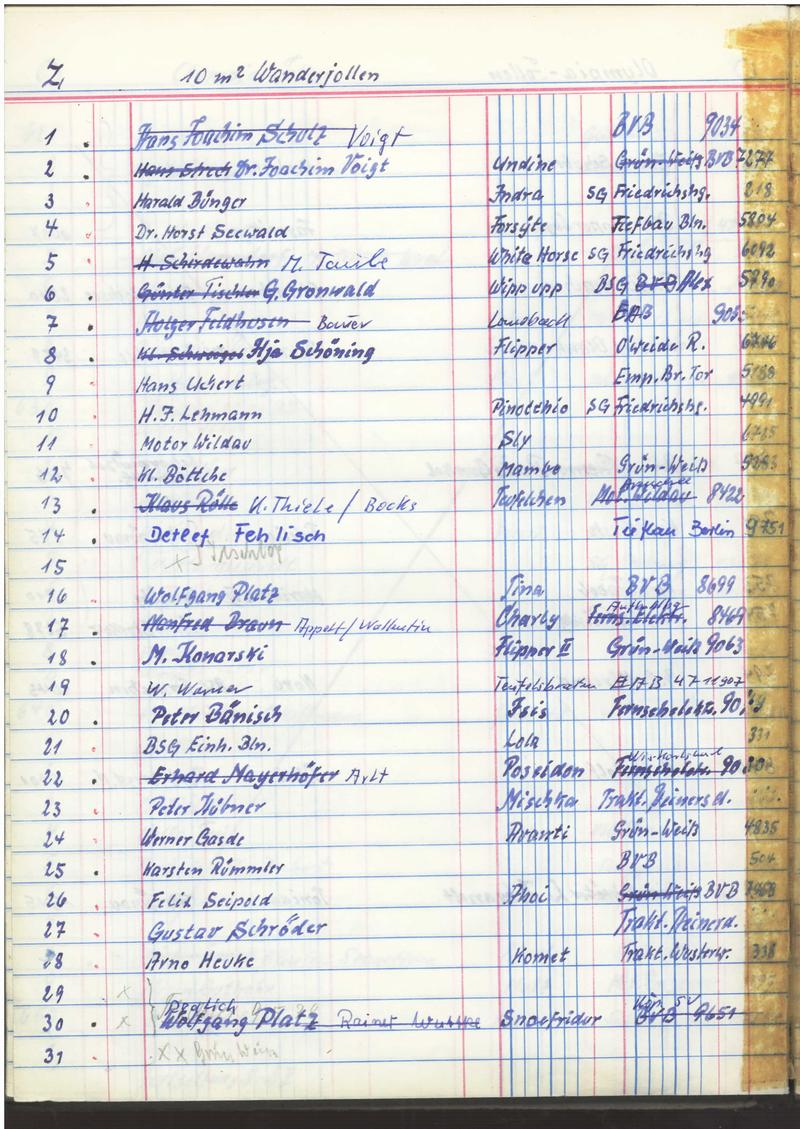 Z 10 m² Wanderjollen
1 Hans Joachim Schulz Voigt BVB 9034
2 Hans Strech Dr. Joachim Voigt Undine Grün-Weiß BVB 7277
3 Harald Bünger Indra SG Friedrichshg. 218
4 Dr. Horst Seewald Forsyte Tiefbau Bln. 5804
5 M. Taube White Horse SG Friedrichshg 6092
6 Günter Tischler G. Gronwald Wipp upp BSG BVB Alex 5790
7 Holger Feldhusen Bauer
8 Ilja Schöning Flipper O'weide R.
9 Hans Uchert Emp. Br. Tor 5188
10 H. F. Lehmann Pinocchio SG Friedrichshg. 4991
11 Motor Wildau Sly
12 Kl. Böttche Mambo Grün-Weiß
13 Klaus Rölle K. Thiele / Bocks Teufelchen Mot. Wildau 8422
14 Detlef Fehlisch Tiefbau Berlin 9751
15
16 Wolfgang Platz Tina BVB 8699
17 Manfred Braun Appelt / Wallentin Charly Ferns. Elektr. 8469
18 M. Konarski Flipper II Grün-Weiß 9063
19 W. Werner
20 Peter Bänisch Isis Fernsehelekt.
21 BSG Einh. Bln. Lola 331
22 Erhard Mayerhöfer Arlt Poseidon Fernsehelektr.
23 Peter Hübner Mischka Trakt. Zeinersd.
24 Werner Gasde Avanti Grün-Weiß 4835
25 Karsten Rümmler BVB 504
26 Felix Seipold Phoi Grün-Weiß BVB
27 Gustav Schröder
28 Arno Heuke Komet Trakt. Wusterw. 338
29
30 Wolfgang Platz Rainer Wuttke Snoefridur BVB 9651
31